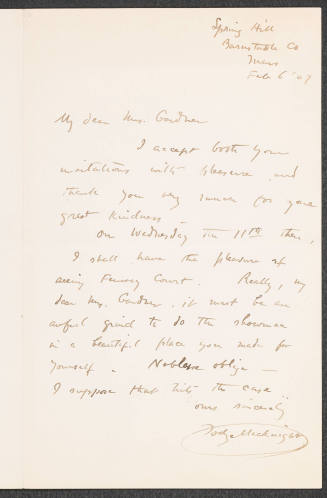 Spring Hill
Barnstable Co
Mass
Feb 6 '07
My dear Mrs. Gardner
I accept both your
invitations with pleasure and
thank you very much for your
great kindness —
On Wednesday the 11th then,
I shall have the pleasure of
seeing Fenway Court. Really, my
dear Mrs. Gardner, it must be an
awful grind to do the showman
in a beautiful place you made for
yourself. Noblesse oblige —
I suppose that hits the case
yours sincerely
Dodge Macknight